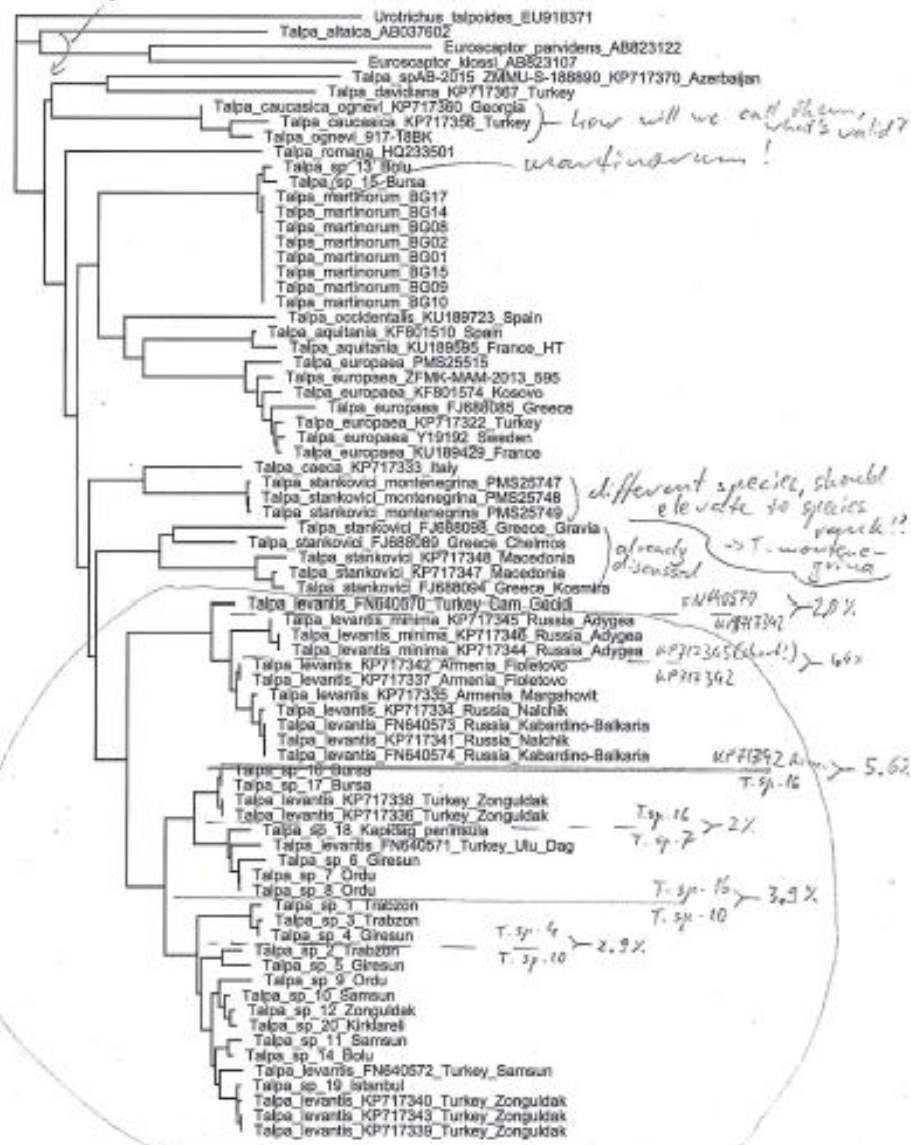 Urotrichus_talpoides_EU918371
Talpa_altaica_AB037602
Euroscaptor_parvidens_AB823122
Euroscaptor_klossi_AB823107
Talpa_spAB-2015_ZMMU-S-188890_KP717370_Azerbaijan
Talpa_davidiana_KP717367_Turkey
Talpa_caucasica_ognevi_KP717360_Georgia
Talpa_caucasica_KP717356_Turkey
how will we call them,
what's valid?
Talpa_ognevi_917-T8BK
Talpa_romana_HQ233501
Talpa_sp_13_Bolu
martinorum!
Talpa_sp_15_Bursa
Talpa_martinorum_BG17
Talpa_martinorum_BG14
Talpa_martinorum_BG08
Talpa_martinorum_BG02
Talpa_martinorum_BG01
Talpa_martinorum_BG15
Talpa_martinorum_BG09
Talpa_martinorum_BG10
Talpa_occidentalis_KU189723_Spain
Talpa_aquitania_KF801510_Spain
Talpa_aquitania_KU189595_France_HT
Talpa_europaea_PMS25515
Talpa_europaea_ZFMK-MAM-2013_595
Talpa_europaea_KF801574_Kosovo
Talpa_europaea_FJ688085_Greece
Talpa_europaea_KP717322_Turkey
Talpa_europaea_Y19192_Sweden
Talpa_europaea_KU189429_France
Talpa_caeca_KP717333_Italy
Talpa_stankovici_montenegrina_PMS25747
Talpa_stankovici_montenegrina_PMS25748
Talpa_stankovici_montenegrina_PMS25749
different species, should
elevate to species
-> T. montene-
grina
Talpa_stankovici_FJ688098_Greece_Gravia
Talpa_stankovici_FJ688089_Greece_Chelmos
Talpa_stankovici_KP717348_Macedonia
Talpa_stankovici_KP717347_Macedonia
Talpa_stankovici_FJ688094_Greece_Kosmira
already
discussed
Talpa_levantis_FN640570_Turkey_Cam_Gecidi
KP717342
2.0%
Talpa_levantis_minima_KP717345_Russia_Adygea
Talpa_levantis_minima_KP717346_Russia_Adygea
Talpa_levantis_minima_KP717344_Russia_Adygea
Talpa_levantis_KP717342_Armenia_Fioletovo
KP717342
Talpa_levantis_KP717337_Armenia_Fioletovo
Talpa_levantis_KP717335_Armenia_Margahovit
Talpa_levantis_KP717334_Russia_Nalchik
Talpa_levantis_FN640573_Russia_Kabardino-Balkaria
Talpa_levantis_KP717341_Russia_Nalchik
Talpa_levantis_FN640574_Russia_Kabardino-Balkaria
KP717342
T.sp.16
5.6%
Talpa_sp_16_Bursa
Talpa_sp_17_Bursa
Talpa_levantis_KP717338_Turkey_Zonguldak
Talpa_levantis_KP717336_Turkey_Zonguldak
Talpa_sp_18_Kapidag_peninsula
T.sp.16
T.sp.7
2%
Talpa_levantis_FN640571_Turkey_Ulu_Dag
Talpa_sp_6_Giresun
Talpa_sp_7_Ordu
Talpa_sp_8_Ordu
T.sp.16
T.sp.10
3.9%
Talpa_sp_1_Trabzon
Talpa_sp_3_Trabzon
Talpa_sp_4_Giresun
T.sp.4
T.sp.10
2.9%
Talpa_sp_2_Trabzon
Talpa_sp_5_Giresun
Talpa_sp_9_Ordu
Talpa_sp_10_Samsun
Talpa_sp_12_Zonguldak
Talpa_sp_20_Kirklareli
Talpa_sp_11_Samsun
Talpa_sp_14_Bolu
Talpa_levantis_FN640572_Turkey_Samsun
Talpa_sp_19_Istanbul
Talpa_levantis_KP717340_Turkey_Zonguldak
Talpa_levantis_KP717343_Turkey_Zonguldak
Talpa_levantis_KP717339_Turkey_Zonguldak